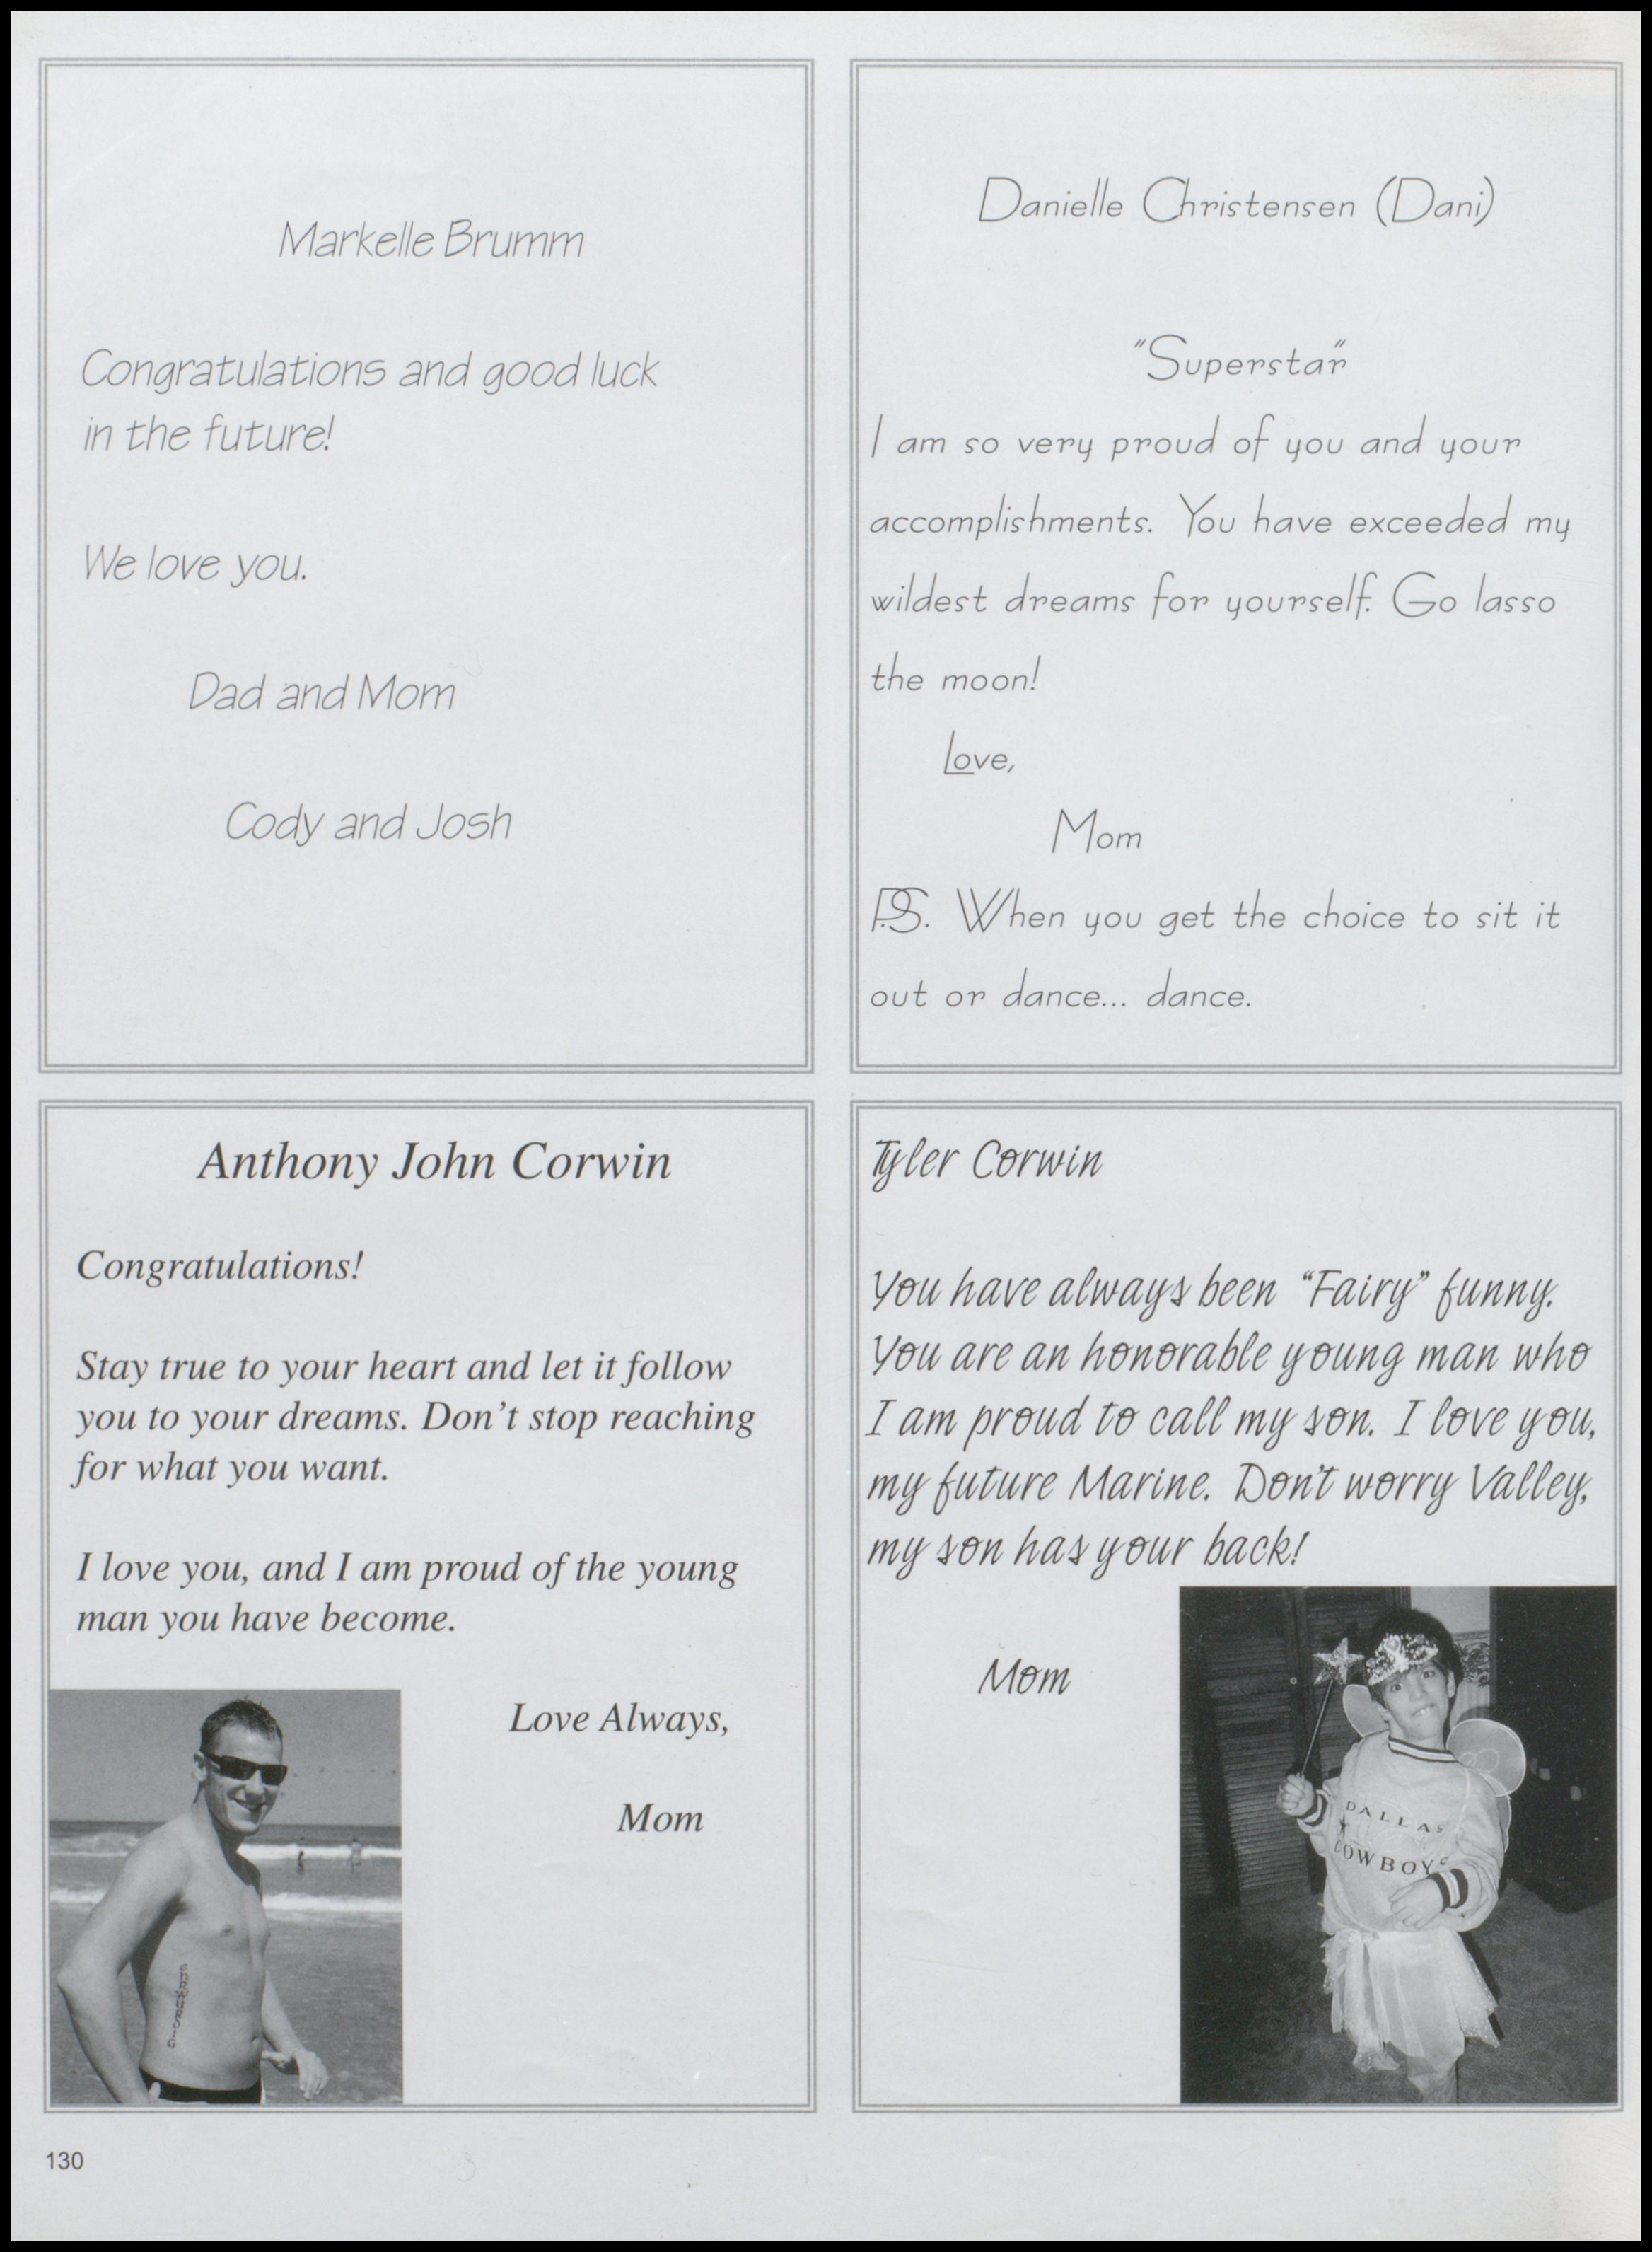 Markelle Brumm
Congratulations and good luck
in the future!
We love you.
Dad and Mom
Cody and Josh
Danielle Christensen (Dani)
"Superstar"
I am so very proud of you and your
accomplishments. You have exceeded my
wildest dreams for yourself. Go lasso
the moon!
Love,
Mom
P.S. When you get the choice to sit it
out or dance... dance.
Anthony John Corwin
Congratulations!
Stay true to your heart and let it follow
you to your dreams. Don't stop reaching
for what you want.
I love you, and I am proud of the young
man you have become.
Love Always,
Mom
Tyler Corwin
You have always been "Fairy" funny.
You are an honorable young man who
I am proud to call my son. I love you,
my future Marine. Don't worry Valley,
my son has your back!
Mom
DALLAS
COWBOYS
130